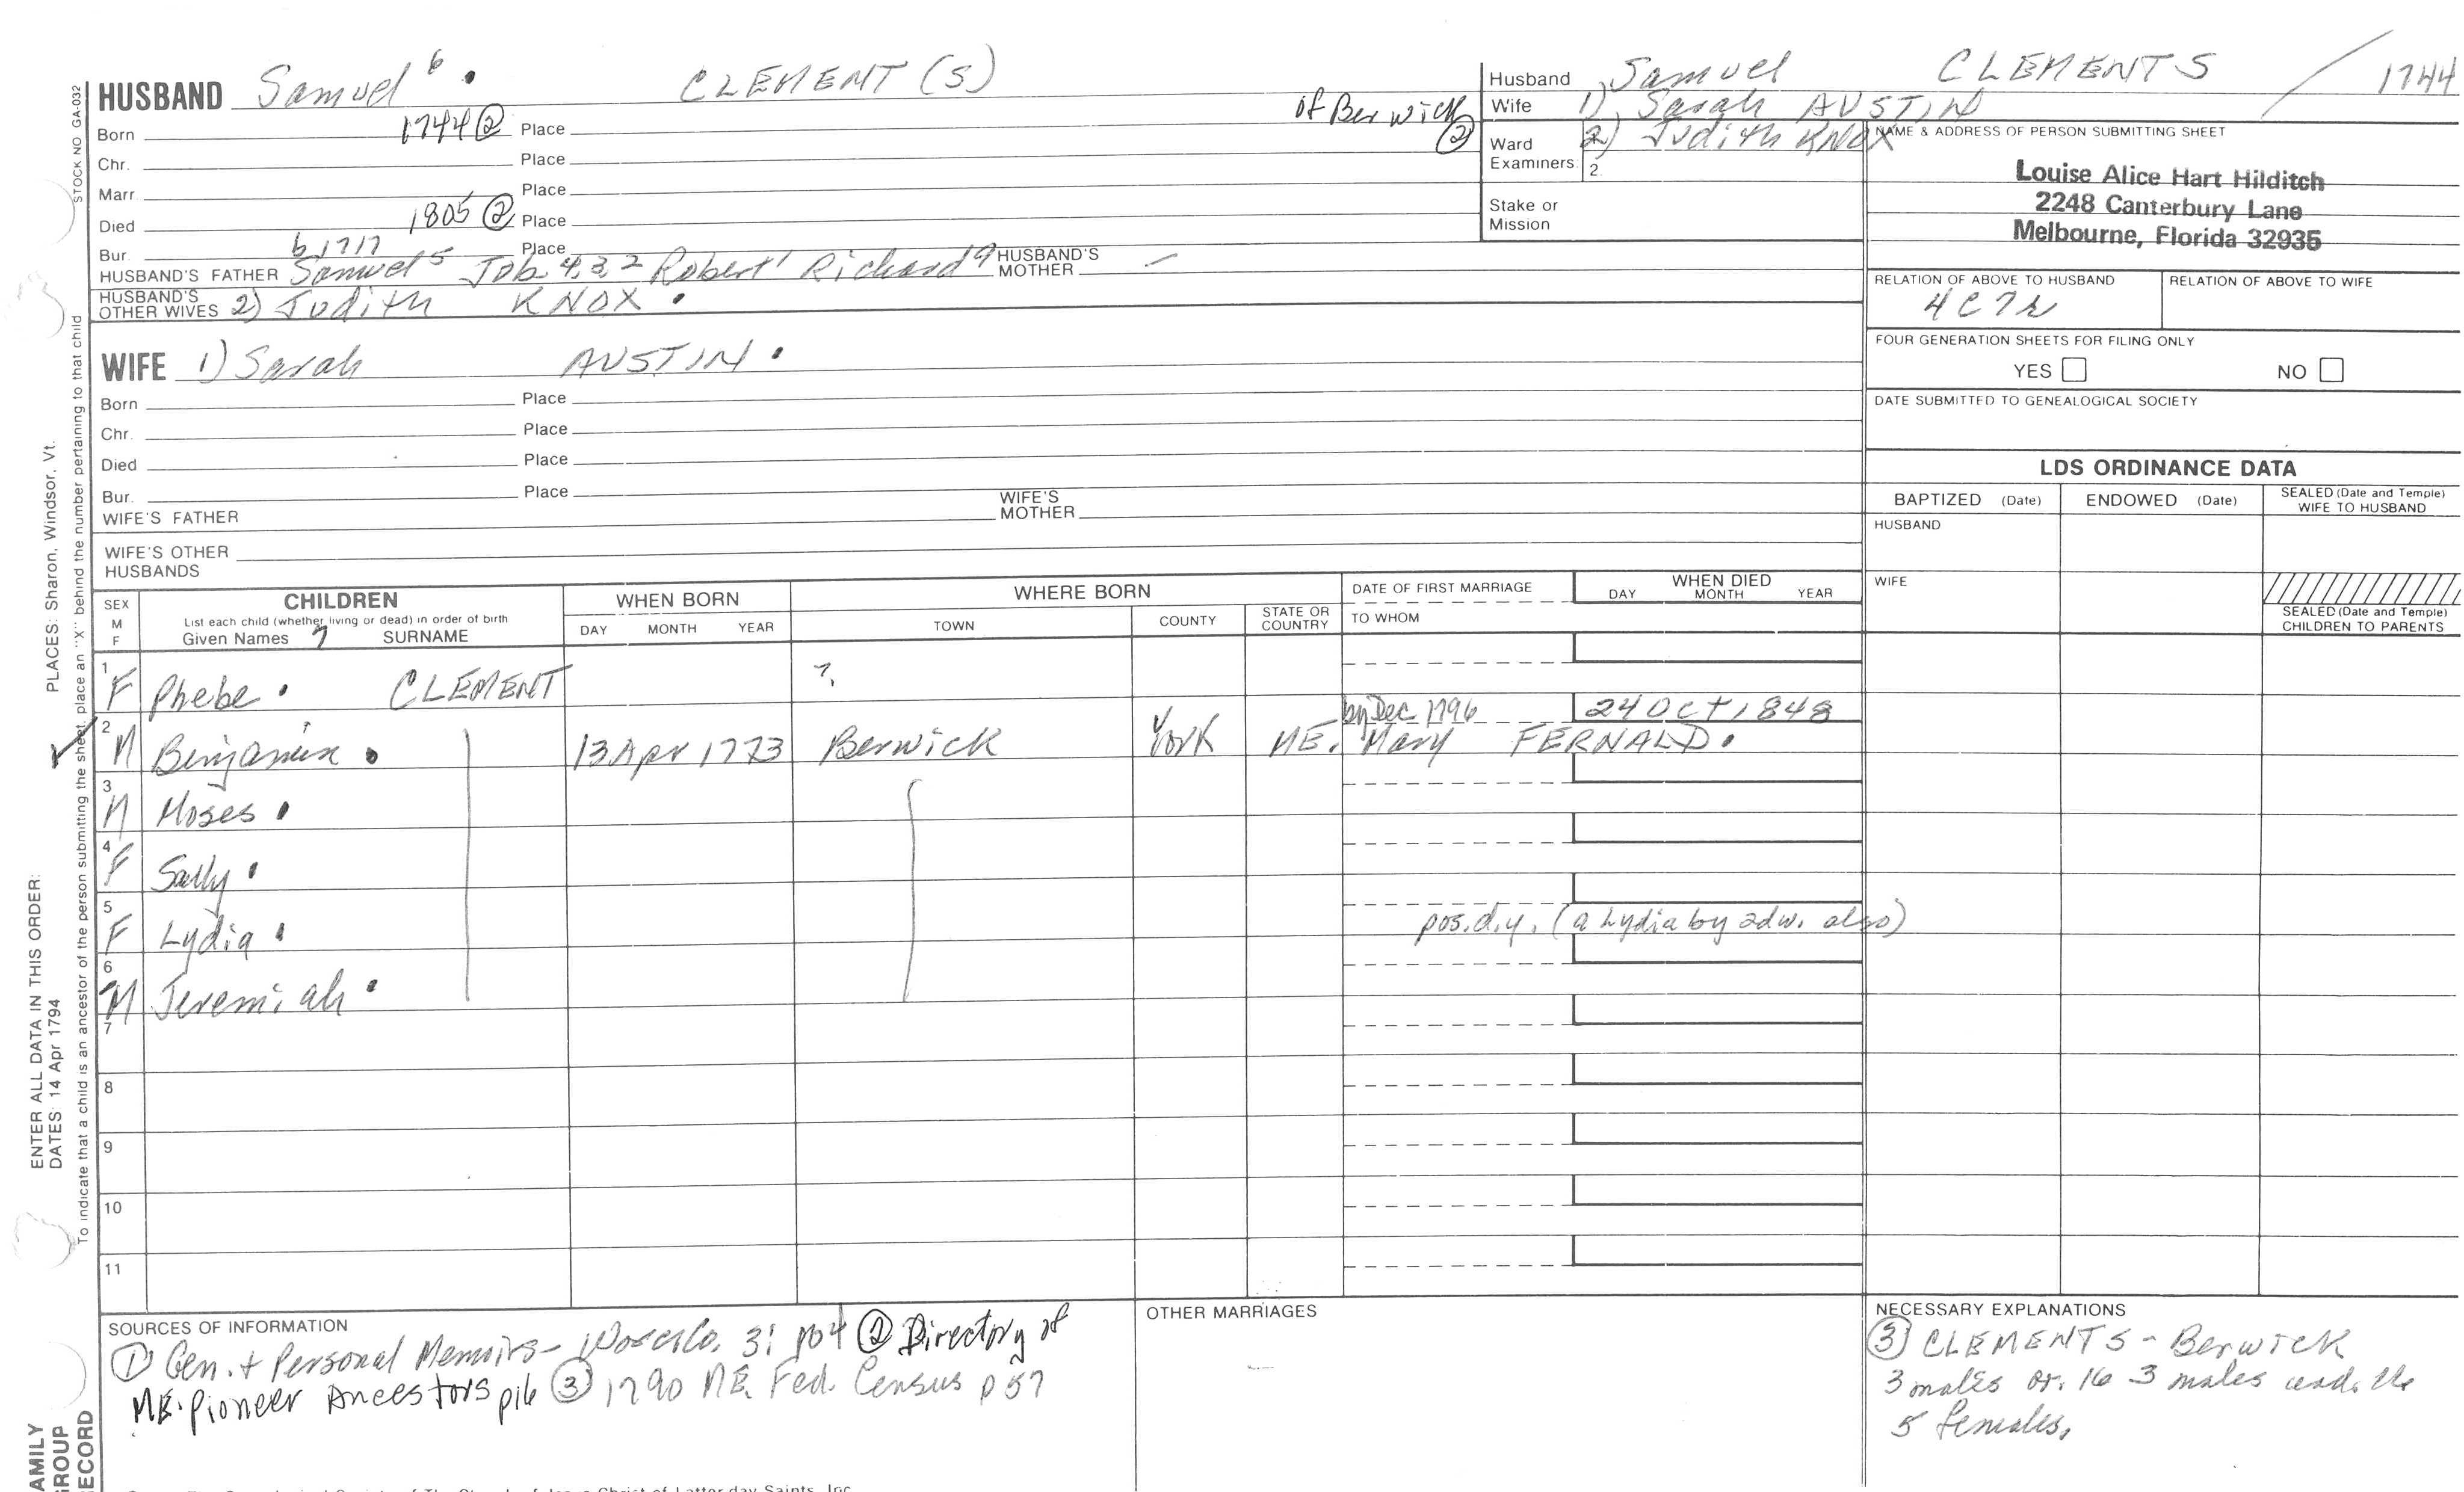 HUSBAND Samuel 6 . CLEMENT (S)
Born 1744 ② Place of Berwick ②
Chr. Place
Marr. Place
Died 1805 ② Place
Bur. b 1717 Place
HUSBAND'S FATHER Samuel 5 Job 4, 3, 2 Robert 1 Richard HUSBAND'S MOTHER —
HUSBAND'S OTHER WIVES 2) Judith KNOX .
WIFE 1) Sarah AUSTIN .
Born Place
Chr. Place
Died Place
Bur. Place
WIFE'S FATHER WIFE'S MOTHER
WIFE'S OTHER HUSBANDS
Husband Samuel CLEMENTS / 1744
Wife 1) Sarah AUSTIN
Ward 2) Judith KNOX
Examiners: 2.
Stake or Mission
NAME & ADDRESS OF PERSON SUBMITTING SHEET
Louise Alice Hart Hilditch
2248 Canterbury Lane
Melbourne, Florida 32935
RELATION OF ABOVE TO HUSBAND RELATION OF ABOVE TO WIFE
4C7R
FOUR GENERATION SHEETS FOR FILING ONLY
YES NO
DATE SUBMITTED TO GENEALOGICAL SOCIETY
LDS ORDINANCE DATA
BAPTIZED (Date) ENDOWED (Date) SEALED (Date and Temple) WIFE TO HUSBAND
HUSBAND
WIFE
SEALED (Date and Temple) CHILDREN TO PARENTS
SEX M F CHILDREN List each child (whether living or dead) in order of birth Given Names ? SURNAME
WHEN BORN DAY MONTH YEAR
WHERE BORN TOWN COUNTY STATE OR COUNTRY
DATE OF FIRST MARRIAGE TO WHOM
WHEN DIED DAY MONTH YEAR
1 F Phebe . CLEMENT ?
2 M Benjamin . 13 Apr 1773 Berwick York ME. by Dec 1796 Mary FERNALD . 24 Oct 1848
3 M Moses .
4 F Sally .
5 F Lydia . pos. d.y. (a Lydia by 2d w. also)
6 M Jeremiah .
7
8
9
10
11
SOURCES OF INFORMATION
① Gen. + Personal Memoirs - Worc. Co. 3: p04 ② Directory of
ME. Pioneer Ancestors p16 ③ 1790 ME. Fed. Census p 57
OTHER MARRIAGES
NECESSARY EXPLANATIONS
③ CLEMENTS - Berwick
3 males ov. 16 3 males und. 16
5 females.
STOCK NO GA-032
PLACES: Sharon, Windsor, Vt.
To indicate that a child is an ancestor of the person submitting the sheet, place an "X" behind the number pertaining to that child
ENTER ALL DATA IN THIS ORDER:
DATES: 14 Apr 1794
AMILY
ROUP
ECORD